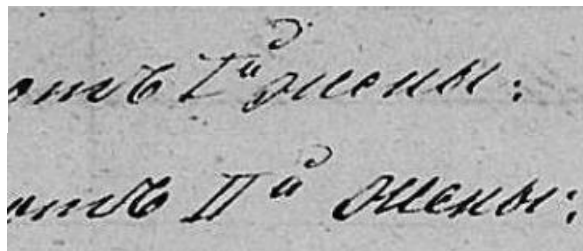 отъ I й жены:
отъ II й жены: